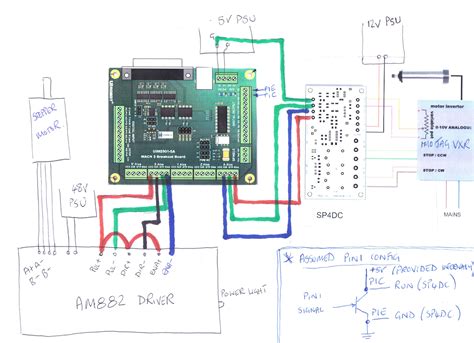 5V PSU
12V PSU
P1E
P1C
MACH 3 Breakout Board
SERVO
MOTOR
48V
PSU
motor invertor
0-10V ANALOGUE
STOP / CCW
STOP / CW
MAINS
SP4DC
A+ A-
B+ B-
PUL+
PUL-
DIR+
DIR-
AM882 DRIVER
POWER LIGHT
* ASSUMED PIN1 CONFIG
+5V (PROVIDED INTERNALLY)
P1C RUN (SP4DC)
PIN1
SIGNAL
P1E GND (SP4DC)